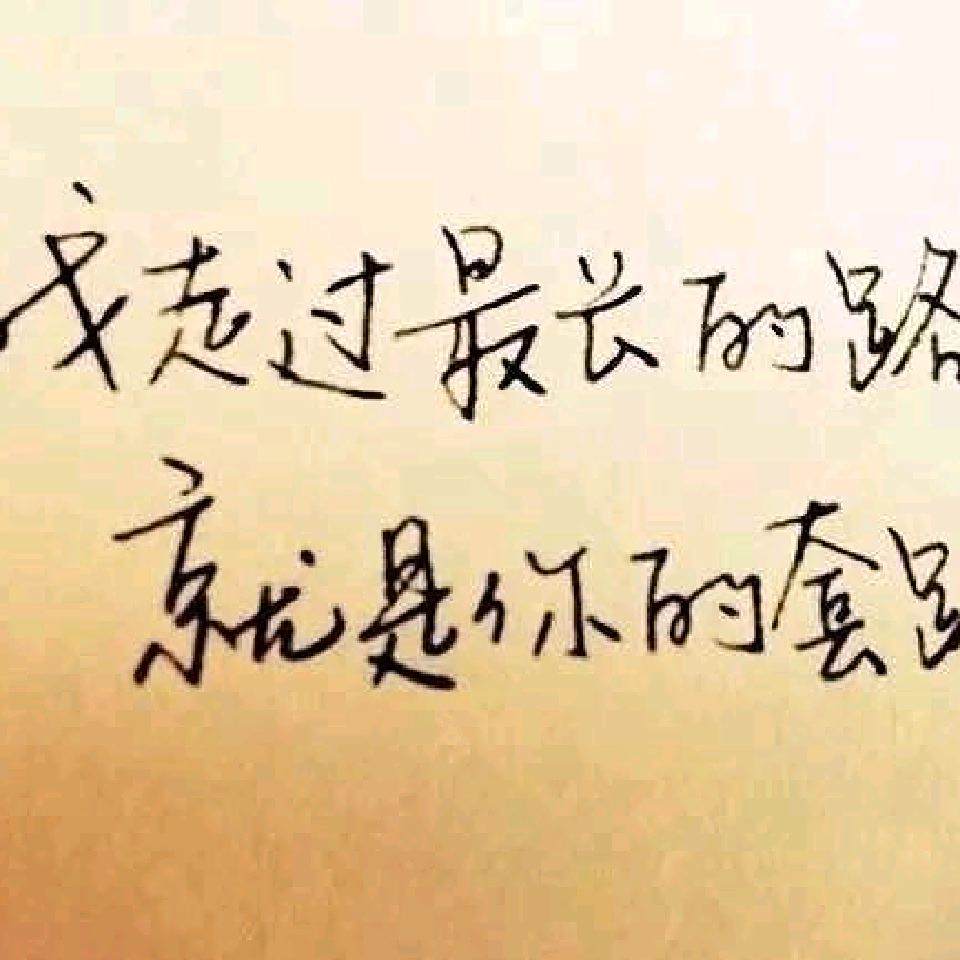 我走过最长的路
就是你的套路